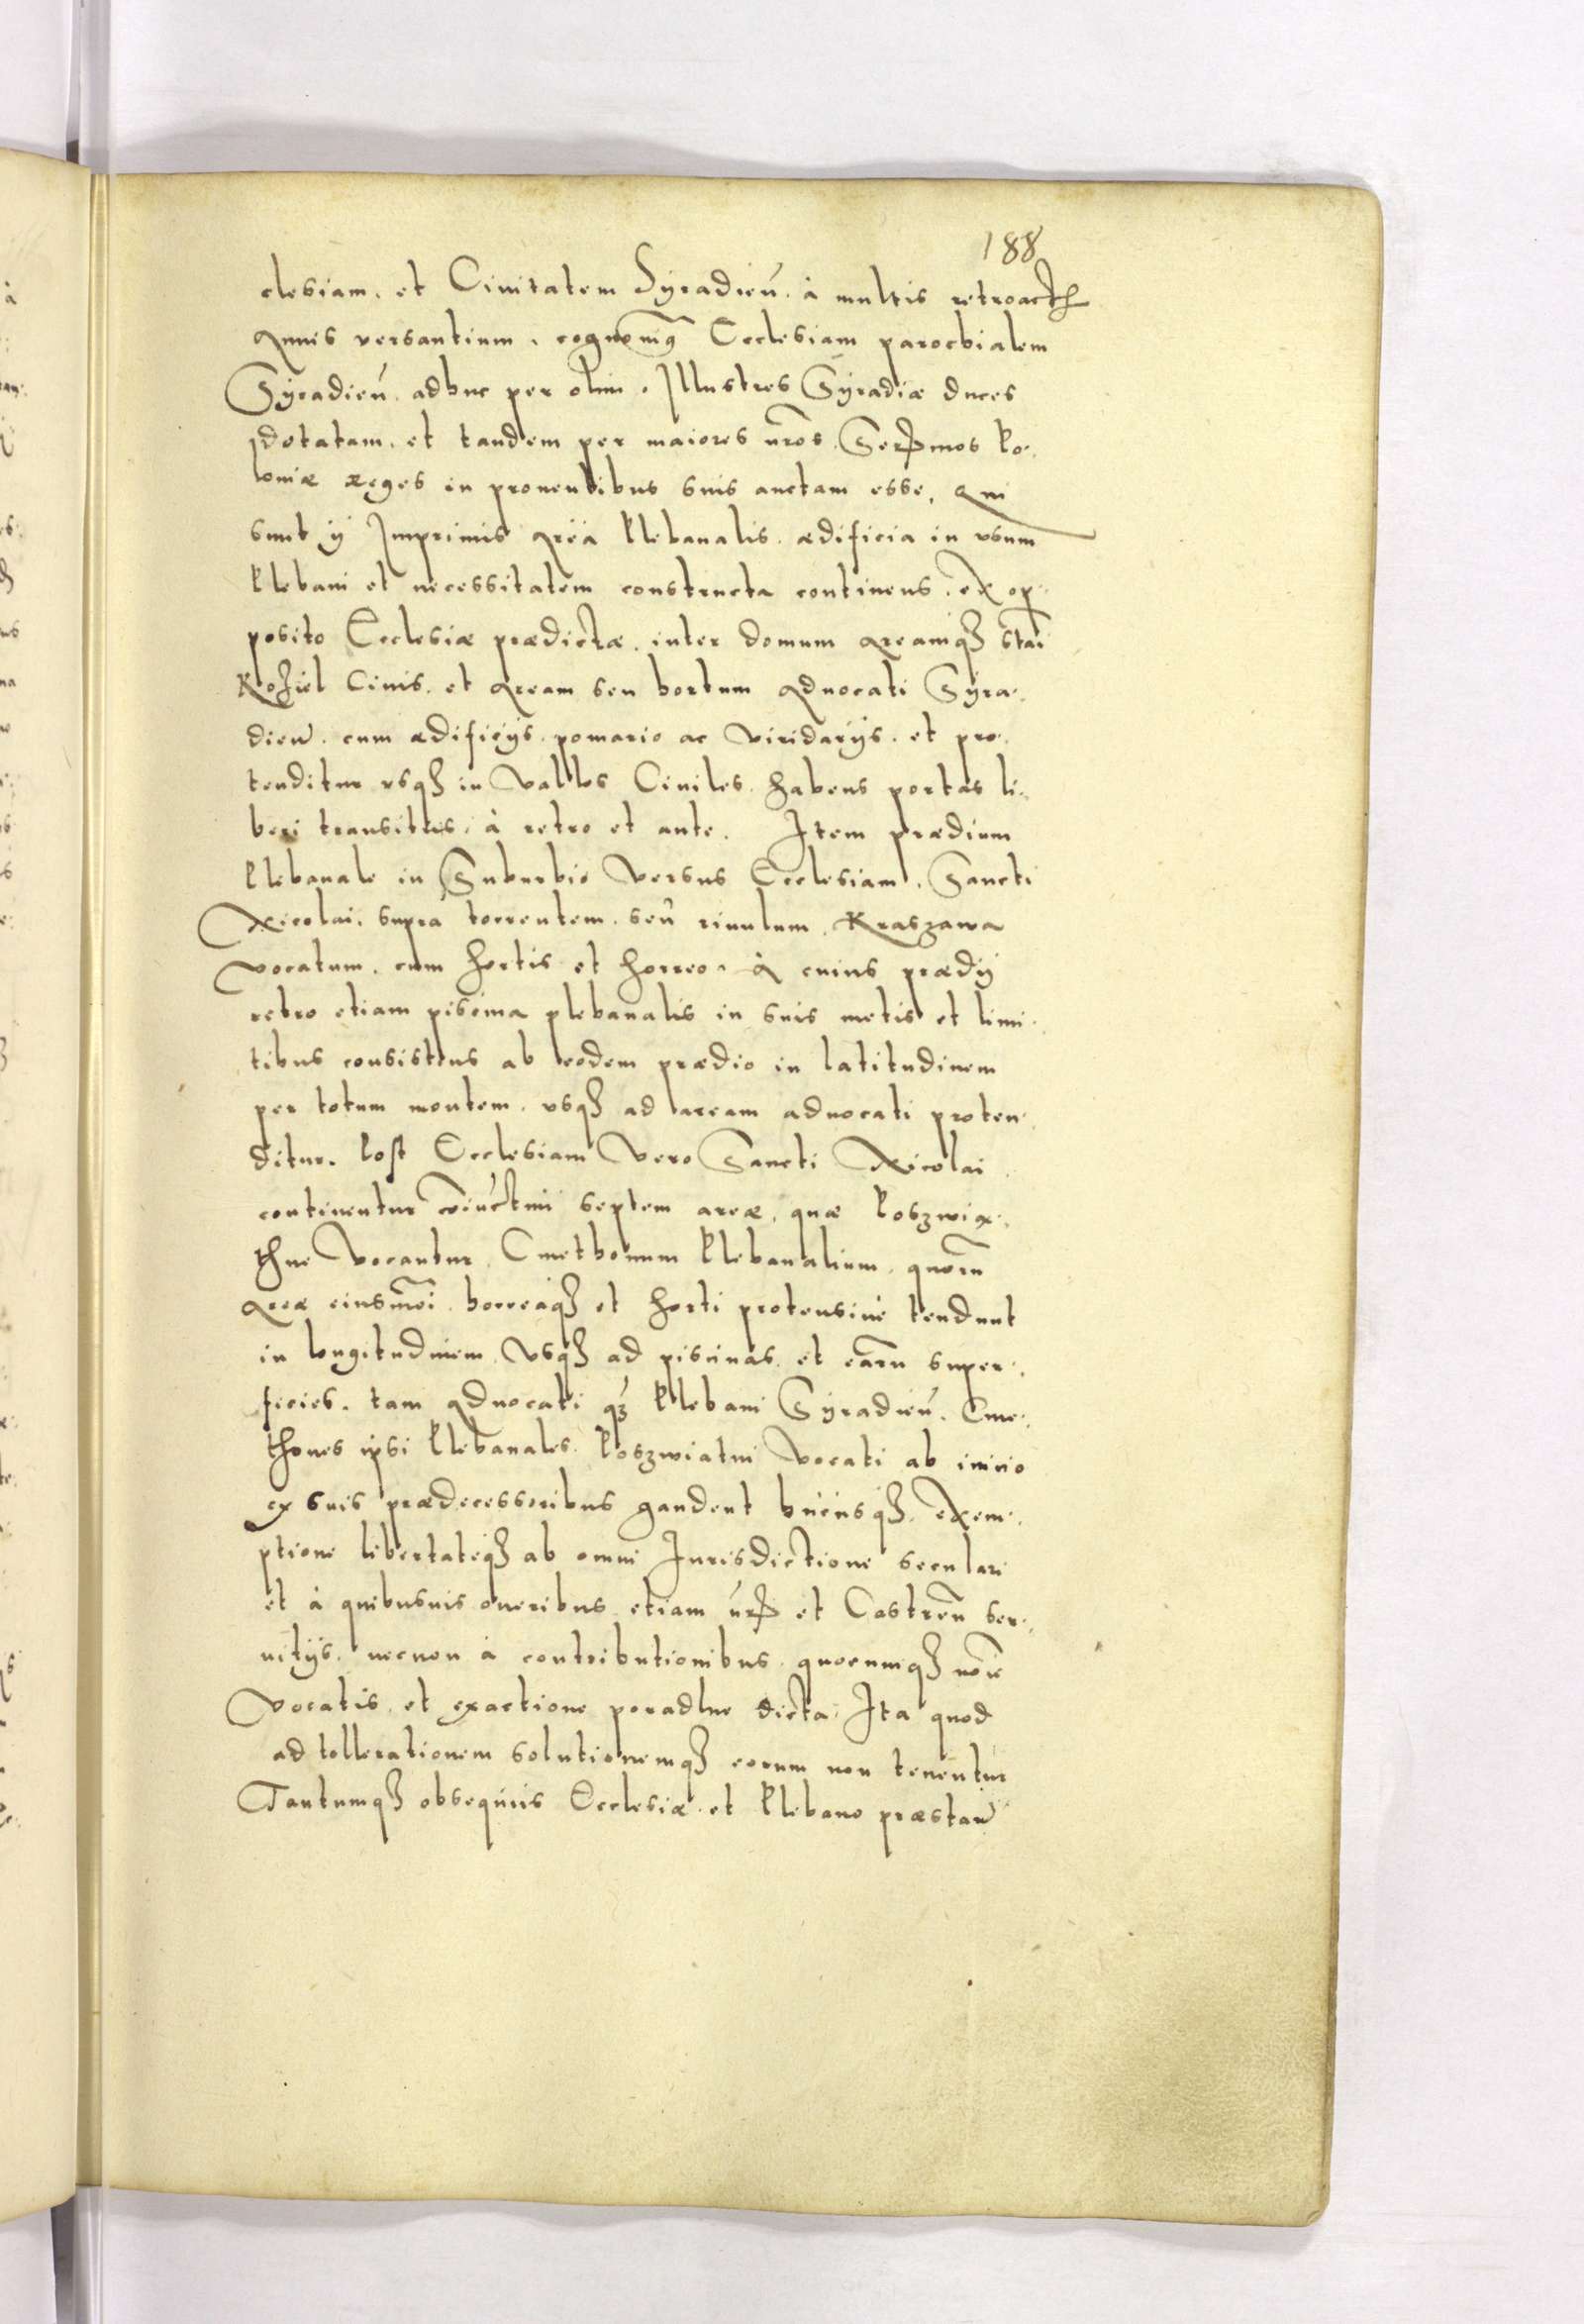 188
clesiam. et Civitatem Syradień. à multis retroact
Annis versantium. cognovimꝰ Ecclesiam parochialem
Syradień. adhuc per olim. Illustres Syradiæ duces
dotatam. et tandem per maiores nros. Sermos Po-
loniæ Reges in proventibus suis auctam esse. Qui
sunt ij Imprimis Area Plebanalis. ædificia in vsum
Plebani et necessitatem constructa continens. ex op-
posito Ecclesiæ prædictæ. inter domum Areamqꝫ Stai
Koziel Civis. et Aream seu hortum Advocati Syra-
dień. cum ædificijs. pomario ac Viridarijs. et pro-
tenditur vsqꝫ in Vallos Civiles. habens portas li-
beri transitus. à retro et ante. Item prædium
Plebanale in Suburbio Versus Ecclesiam. Sancti
Nicolai. supra torrentem. seu rivulum. Kraszawa
Vocatum. cum hortis et horreo. A cuius prædij
retro etiam piscina plebanalis in suis metis et limi-
tibus consistens ab eodem prædio in latitudinem
per totum montem. vsqꝫ ad aream advocati proten-
ditur. Post Ecclesiam Vero Sancti Nicolai
continentur coiuctim septem areæ. quæ Poszwią-
thne Vocantur. Cmethonum Plebanalium. quorū
Areæ eiusmoi. horreaqꝫ et horti protensive tendunt
in longitudinem. Vsqꝫ ad piscinas. et earū super-
ficies. tam Advocati qꝫ Plebani Syradień. Cme-
thones ipsi Plebanales. Poszwiatni Vocati ab initio
ex suis prædecessoribus gaudent hucusqꝫ. exem-
ptione libertateqꝫ ab omni Iurisdictione seculari
et à quibusuis oneribus etiam nr̄is et Castreñ ser-
vitijs. necnon à contributionibus. quocumqꝫ noīe
Vocatis. et exactione poradlne dicta. Ita quod
ad tollerationem solutionemqꝫ eorum non tenentur
Tantumqꝫ obsequiis Ecclesiæ. et Plebano præstań